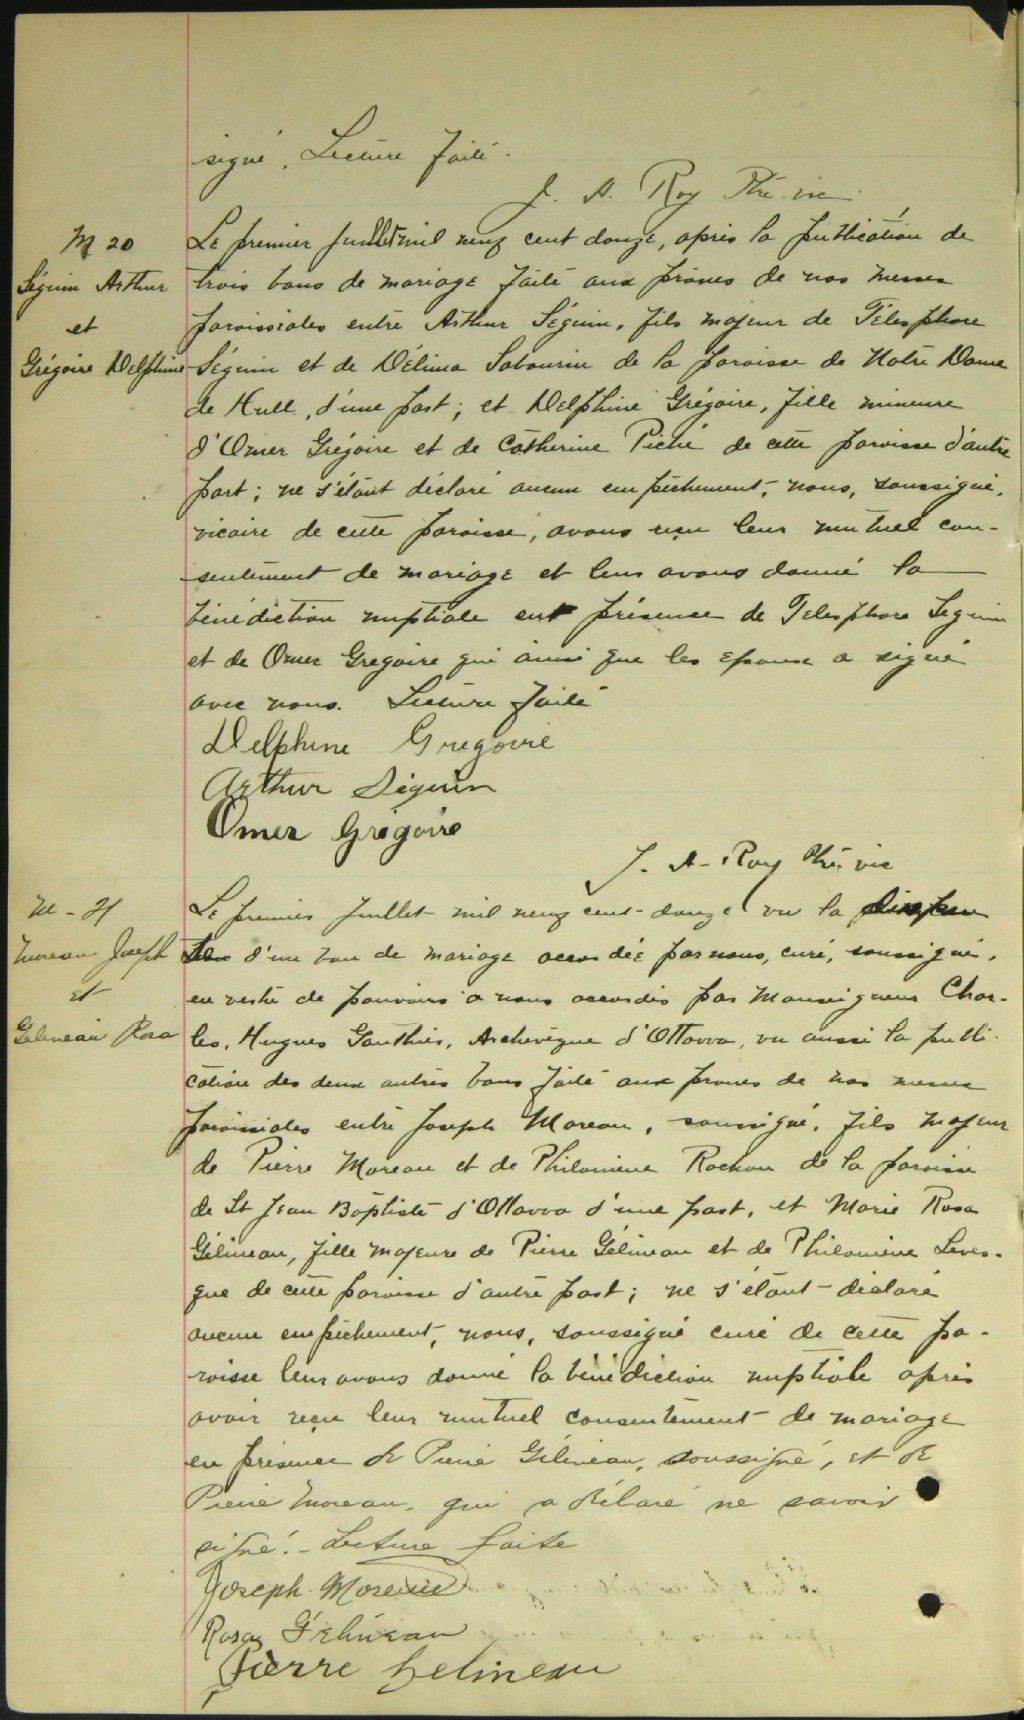 signé. Lecture faite.
J. A. Roy Ptre. vic.
M 20
Séguin Arthur
et
Grégoire Delphine
Le premier juillet mil neuf cent douze, après la publication de
trois bans de mariage faite aux prônes de nos messes
paroissiales entre Arthur Séguin, fils majeur de Télesphore
Séguin et de Délima Sabourin de la paroisse de Notre Dame
de Hull, d'une part; et Delphine Grégoire, fille mineure
d'Omer Grégoire et de Catherine Piché de cette paroisse d'autre
part; ne s'étant déclaré aucun empêchement, nous, soussigné,
vicaire de cette paroisse, avons reçu leur mutuel con-
sentement de mariage et leur avons donné la
bénédiction nuptiale en présence de Telesphore Seguin
et de Omer Gregoire qui ainsi que les epoux a signé
avec nous. Lecture faite
Delphine Gregoire
Arthur Séguin
Omer Grégoire
J. A. Roy Ptre. vic
M - 21
Moreau Joseph
et
Gelineau Rosa
Le premier juillet mil neuf cent douze vu la
d'un ban de mariage accordée par nous, curé, soussigné,
en vertu de pouvoirs à nous accordés par Monseigneur Char-
les, Hugues Gauthier, Archevêque d'Ottawa, vu aussi la publi-
cation des deux autres bans faite aux prones de nos messes
paroissiales entre Joseph Moreau, soussigné, fils majeur
de Pierre Moreau et de Philomène Rochon de la paroisse
de St Jean Baptiste d'Ottawa d'une part, et Marie Rosa
Gélineau, fille majeure de Pierre Gélineau et de Philomène Leves-
que de cette paroisse d'autre part; ne s'étant déclaré
aucun empêchement, nous, soussigné curé de cette pa-
roisse leur avons donné la bénédiction nuptiale après
avoir reçu leur mutuel consentement de mariage
en présence de Pierre Gélineau, soussigné, et de
Pierre Moreau, qui a déclaré ne savoir
signé. - Lecture faite
Joseph Moreau
Rosa Gélineau
Pierre Gelineau